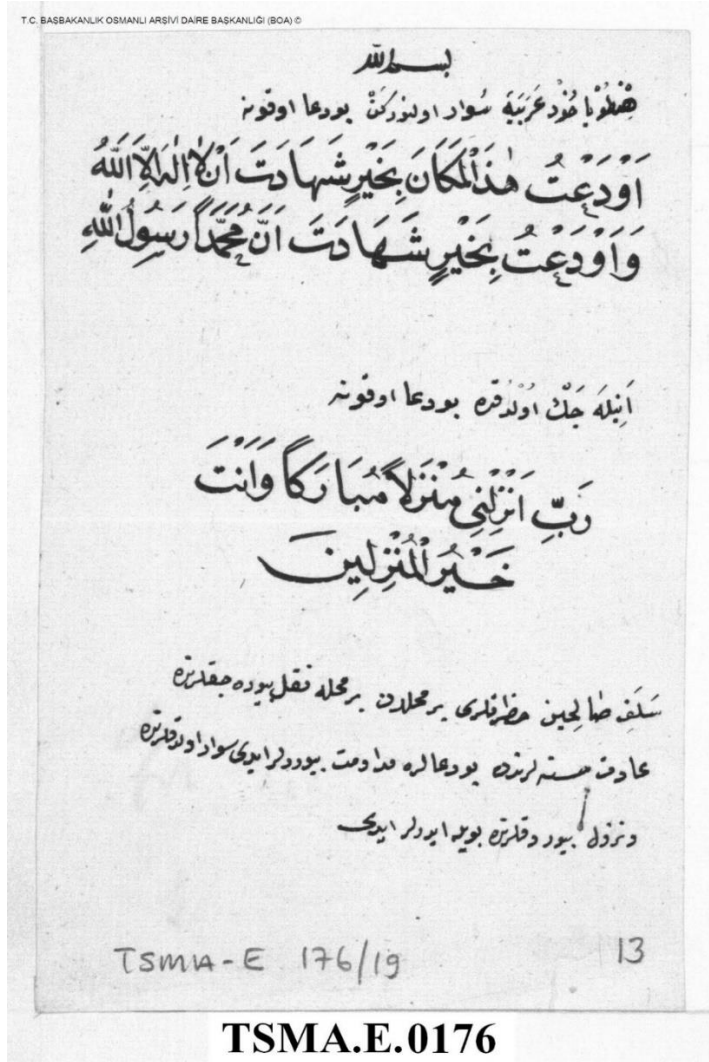 T.C. BAŞBAKANLIK OSMANLI ARŞİVİ DAİRE BAŞKANLIĞI (BOA) ©
بسم الله
هِنْطُوْیَا خُوْد عَرَبَيَهِ سُوار اولنوركَنْ بو دعا اوقونه
اَوْدَعْتُ هٰذَ الْمَكَانَ بِخَيْرٍ شَهَادَتَ اَنْ لَا اِلٰهَ اِلَّا اللّٰهُ
وَاَوْدَعْتُ بِخَيْرٍ شَهَادَتَ اَنَّ مُحَمَّدًا رَسُولُ اللّٰهِ
اَنِيلَه جَكْ اوُلدُقده بو دعا اوقونه
رَبِّ اَنْزِلْنِى مُنْزَلًا مُبَارَكًا وَاَنْتَ
خَيْرُ الْمُنْزِلِينَ
سَلَفِ صَالِحِين حضراتلرى بر محلدن بر محله نقل بيوره جقلرنده
عادت حسنه لرندن بو دعالره مداومت بيوررلر ايدى سوار اولدقلرنده
و نزول بيوردقلرنده بويله ايدرلر ايدى
TSMA-E 176/19
13
TSMA.E.0176